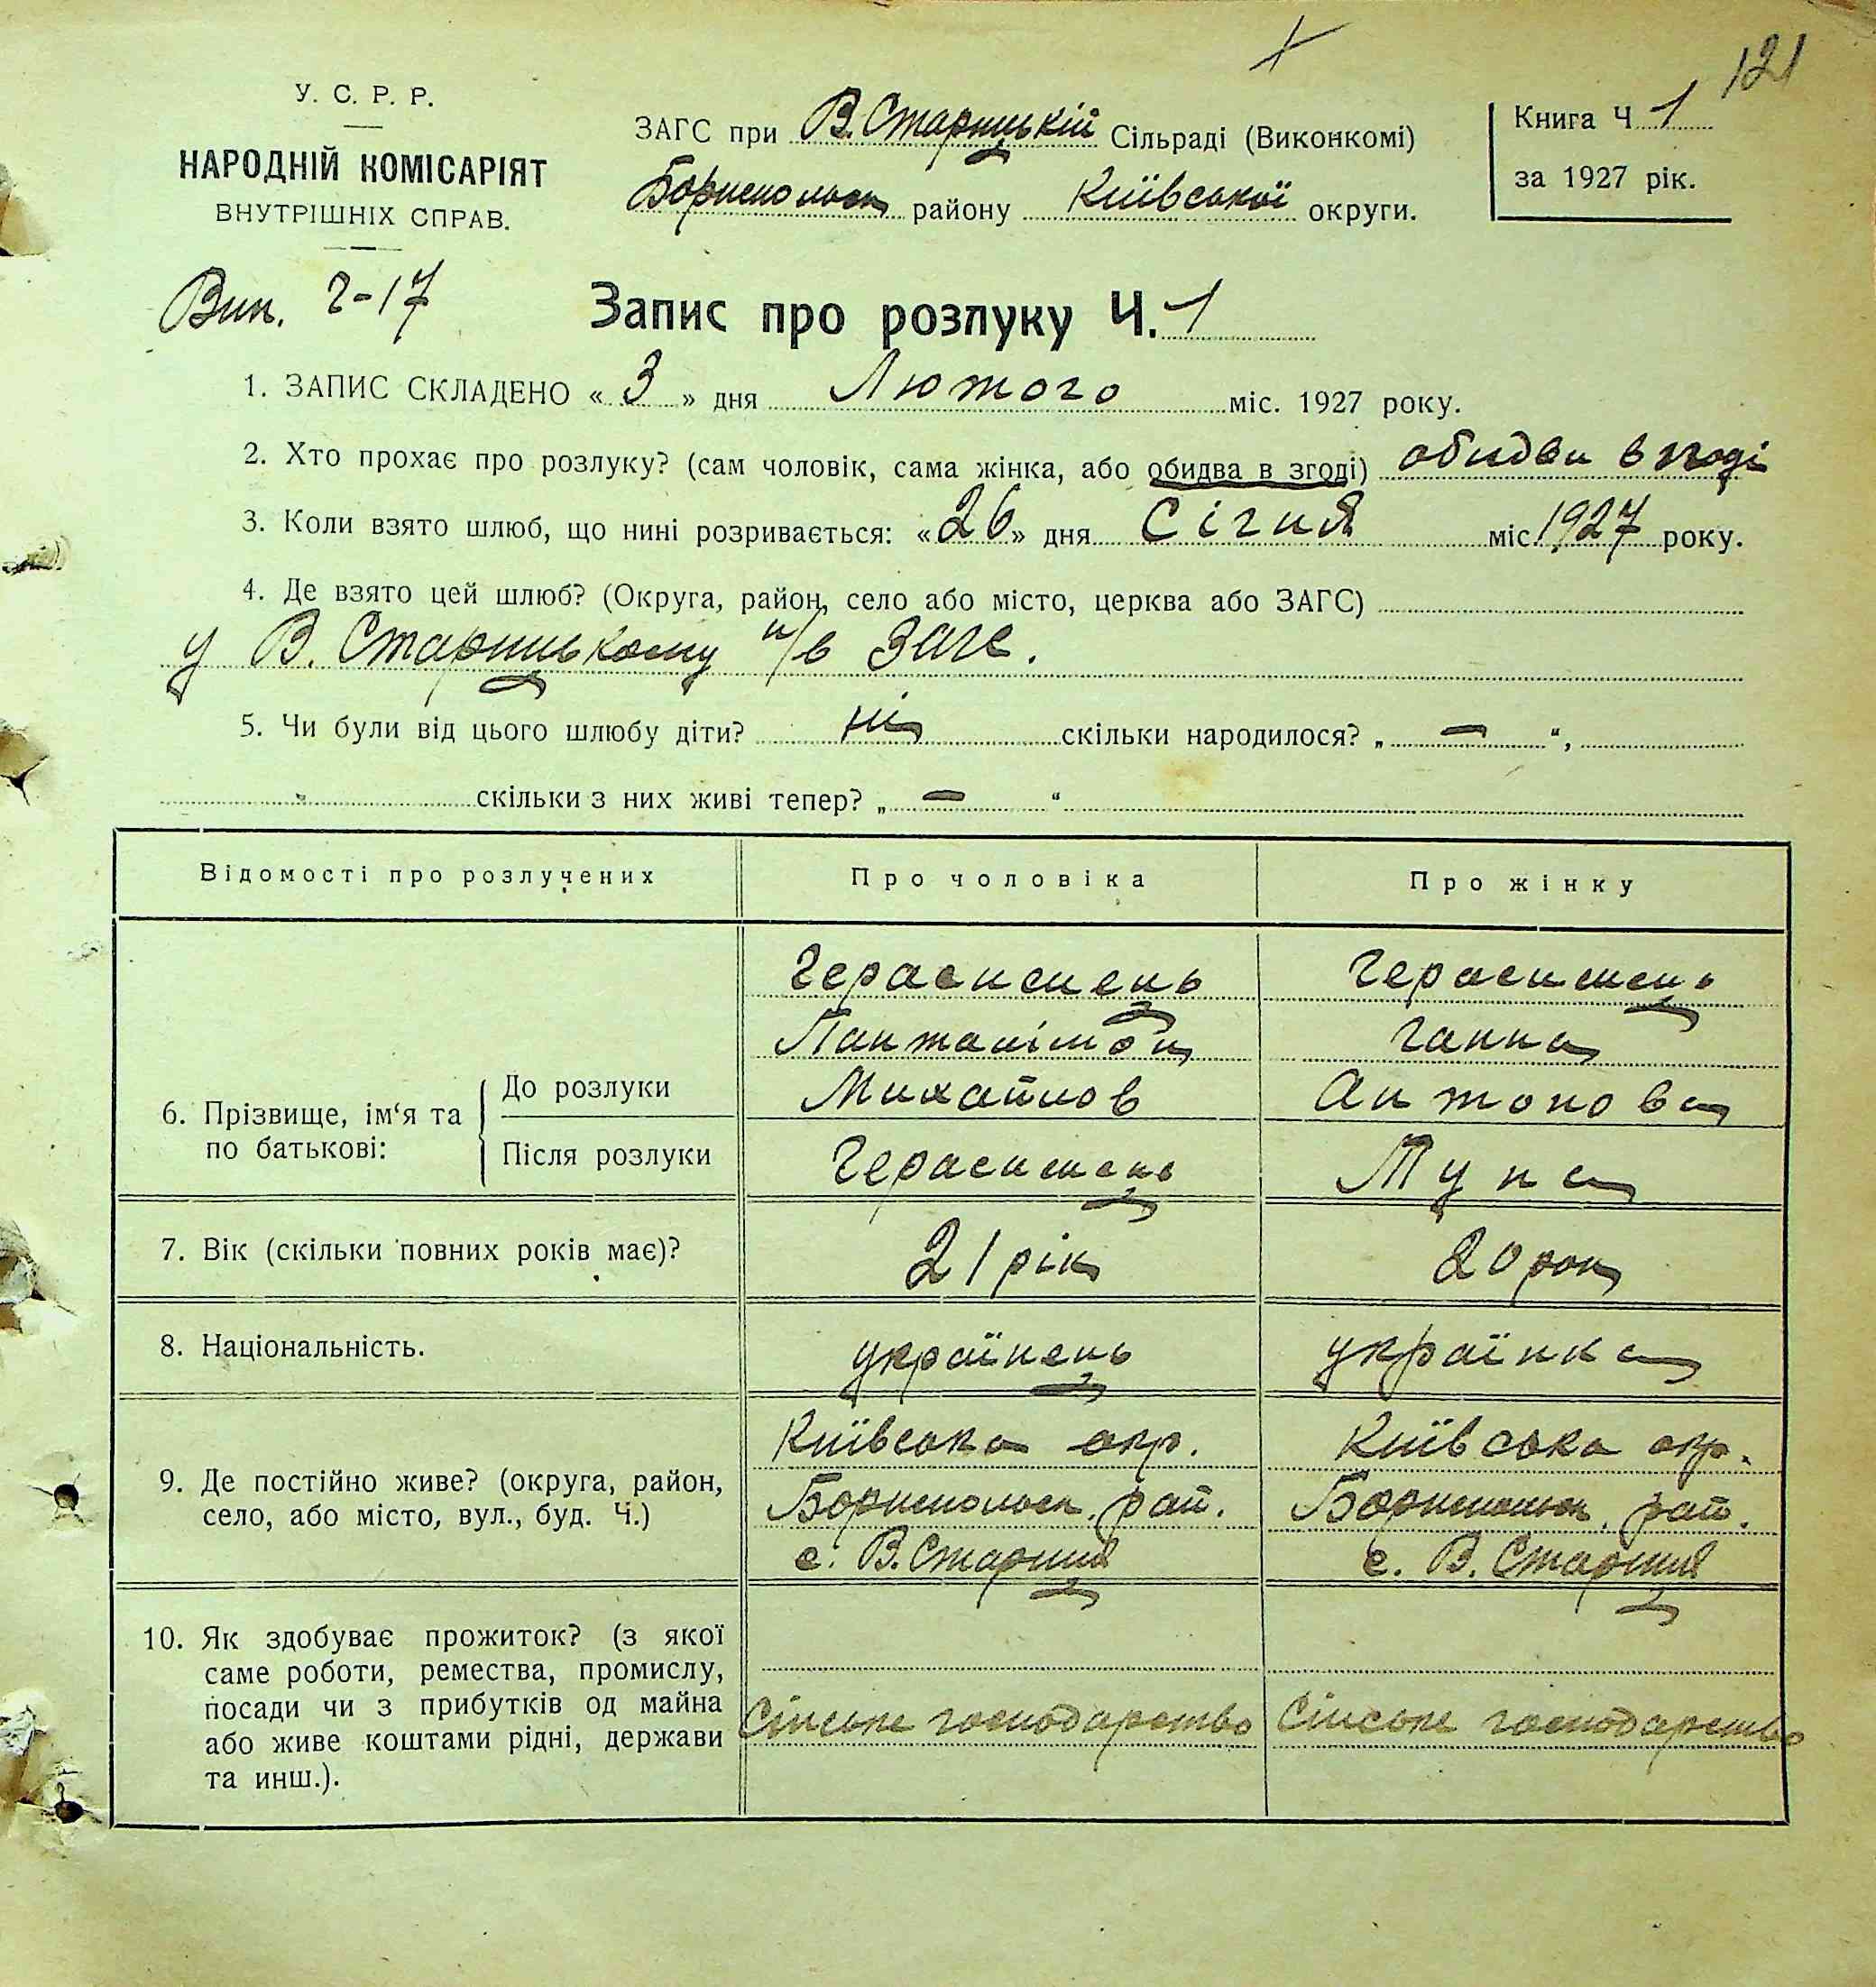 121
У. С. Р. Р.
НАРОДНІЙ КОМІСАРІЯТ
ВНУТРІШНІХ СПРАВ.
ЗАГС при В. Старицькій Сільраді (Виконкомі)
Бориспольськ району Київської округи.
Книга Ч 1
за 1927 рік.
Вип. 2-17
Запис про розлуку Ч. 1
1. ЗАПИС СКЛАДЕНО « 3 » дня Лютого міс. 1927 року.
2. Хто прохає про розлуку? (сам чоловік, сама жінка, або обидва в згоді) обидви в згоді
3. Коли взято шлюб, що нині розривається: «26» дня Січня міс. 1927 року.
4. Де взято цей шлюб? (Округа, район, село або місто, церква або ЗАГС)
у В. Старицькому п/в Загс.
5. Чи були від цього шлюбу діти? ні скільки народилося? „ — “,
скільки з них живі тепер? „ — “
Відомості про розлучених Про чоловіка Про жінку
6. Прізвище, ім‘я та по батькові: До розлуки
Герасимець Герасимець
Панталімон Ганна
Михайлов Антонова
Після розлуки Герасимець Тупа
7. Вік (скільки повних років має)? 21 рік 20 рок
8. Національність. українець українка
9. Де постійно живе? (округа, район, село, або місто, вул., буд. Ч.)
Київська окр. Київська окр.
Бориспольськ. рай. Бориспольськ. рай.
с. В. Стариця с. В. Стариця
10. Як здобуває прожиток? (з якої
саме роботи, ремества, промислу,
посади чи з прибутків од майна
або живе коштами рідні, держави
та инш.).
Сільське господарство Сільське господарство